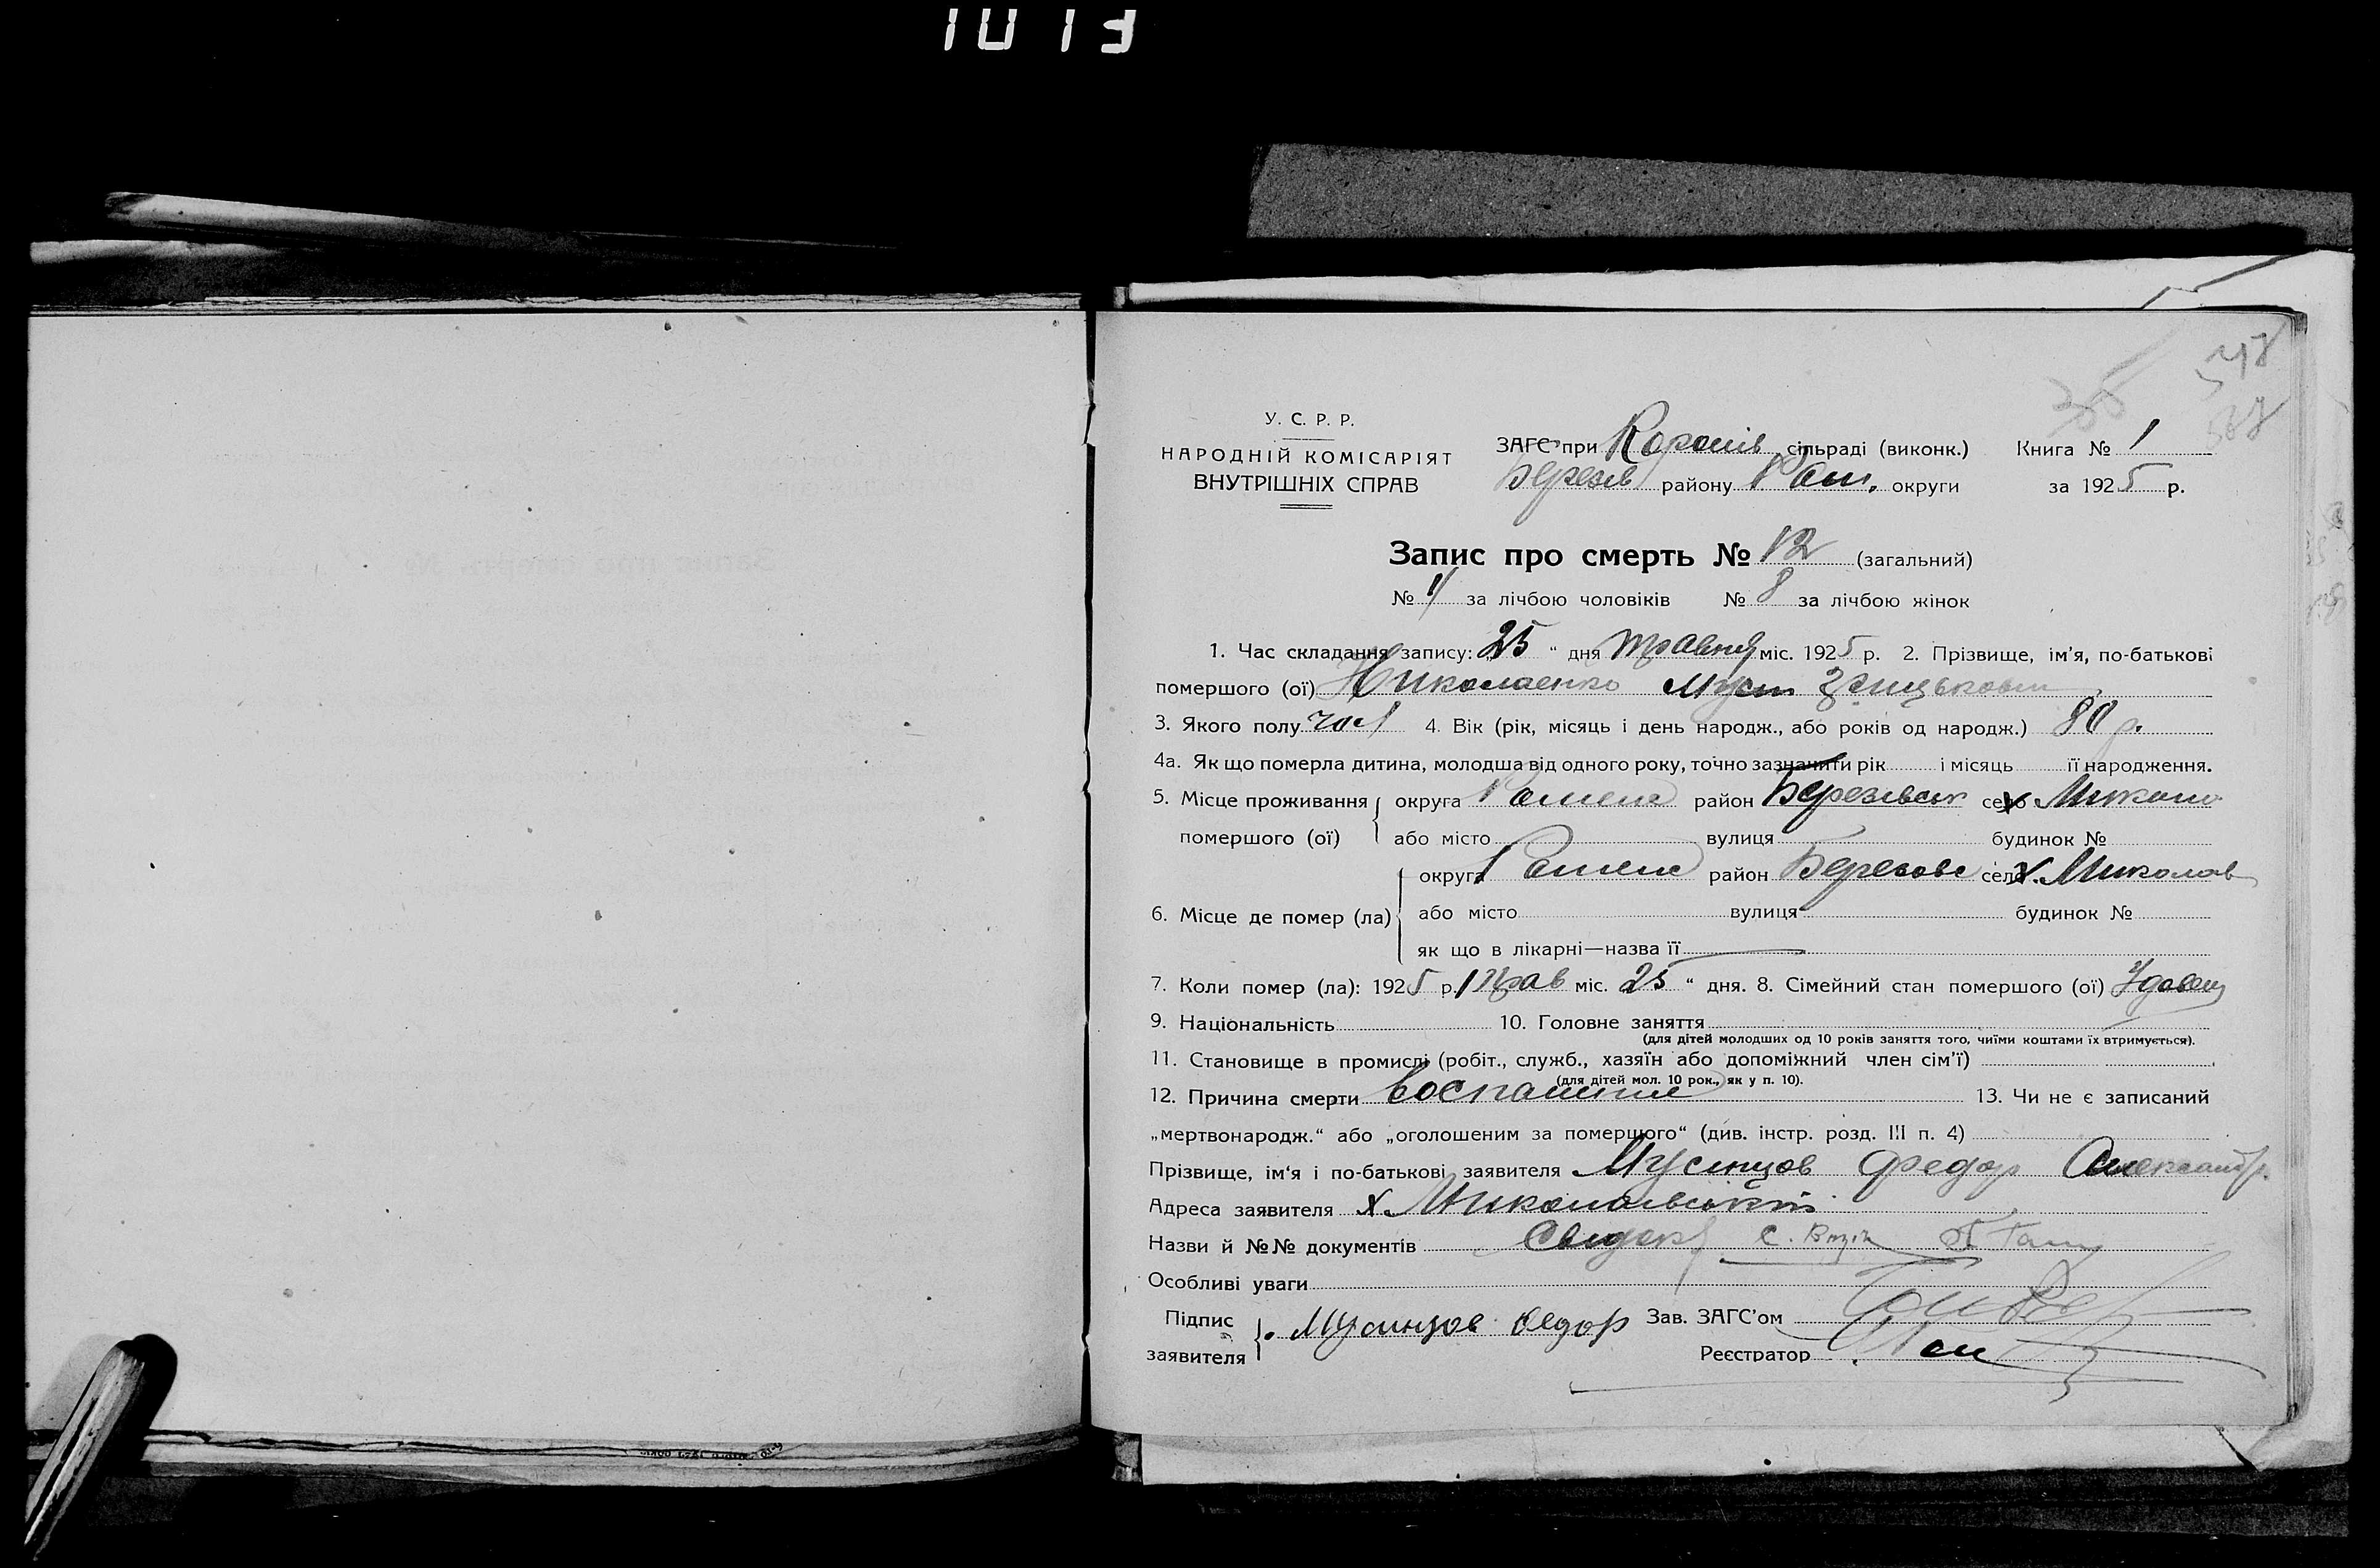 1013
У. С. Р. Р.
НАРОДНІЙ КОМІСАРІЯТ
ВНУТРІШНІХ СПРАВ
ЗАГС при сільраді (виконк.) Книга № 1
Березів району Ром. округи за 1925 р.
Запис про смерть № 12 (загальний)
№ 4 за лічбою чоловіків № 8 за лічбою жінок
1. Час складання запису: „25“ дня травня міс. 1925 р. 2. Прізвище, ім'я, по-батькові
помершого (ої) Николаенко Мусій Грицькович
3. Якого полу чол 4. Вік (рік, місяць і день народж., або років од народж.) 80 р.
4а. Як що померла дитина, молодша від одного року, точно зазначити рік і місяць її народження.
5. Місце проживання округа Роменс район Березівськ село х Микола
помершого (ої) або місто вулиця будинок №
округа Роменс район Березовс село х. Миколав
6. Місце де помер (ла) або місто вулиця будинок №
як що в лікарні—назва її
7. Коли помер (ла): 1925 р. Трав міс. 25 “ дня. 8. Сімейний стан помершого (ої) Удовец
9. Національність 10. Головне заняття
(для дітей молодших од 10 років заняття того, чиїми коштами їх втримується).
11. Становище в промислі (робіт., служб., хазяїн або допоміжний член сім'ї)
(для дітей мол. 10 рок., як у п. 10).
12. Причина смерти воспаления 13. Чи не є записаний
„мертвонародж.“ або „оголошеним за померцого“ (див. інстр. розд. III п. 4)
Прізвище, ім'я і по-батькові заявителя Мусинцов Федор Александр.
Адреса заявителя х. Миколаївський
Назви й №№ документів
Особливі уваги
Підпис
заявителя Мусинцов Федор Зав. ЗАГС'ом
Реєстратор